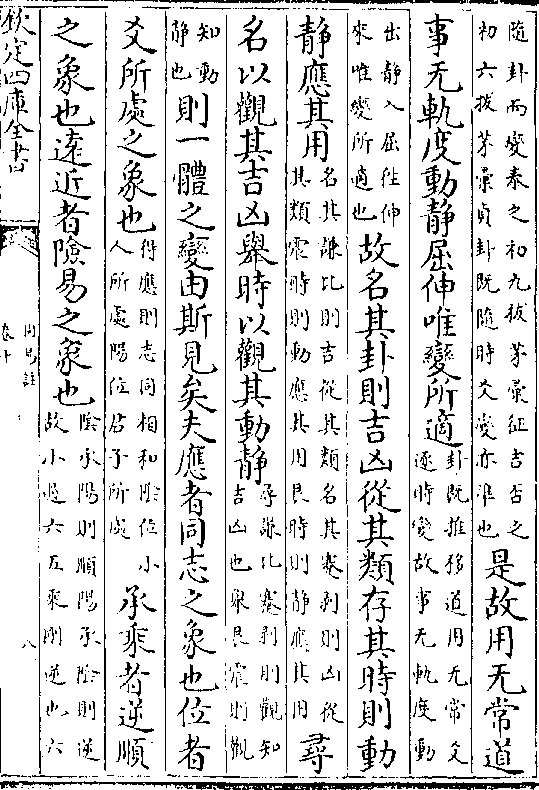 隨卦而變泰之初九拔茅彚征吉否之
初六拔茅彚貞卦既隨時爻變亦準也
是故用无常道
事无軌度動靜屈伸唯變所適
卦既推移道用无常爻
逐時變故事无軌度動
出靜入屈往伸
來唯變所適也
故名其卦則吉凶從其類存其時則動
靜應其用
名其謙比則吉從其類名其蹇剥則凶從
其類震時則動應其用艮時則靜應其用
尋
名以觀其吉凶舉時以觀其動靜
尋謙比蹇剥則觀知
吉凶也舉艮震則觀
知動
靜也
則一體之變由斯見矣夫應者同志之象也位者
爻所處之象也
得應則志同相和陰位小
人所處陽位君子所處
承乘者逆順
之象也遠近者險易之象也
陰承陽則順陽承陰則逆
故小過六五乘剛逆也六
欽定四庫全書
周易註
卷十
八